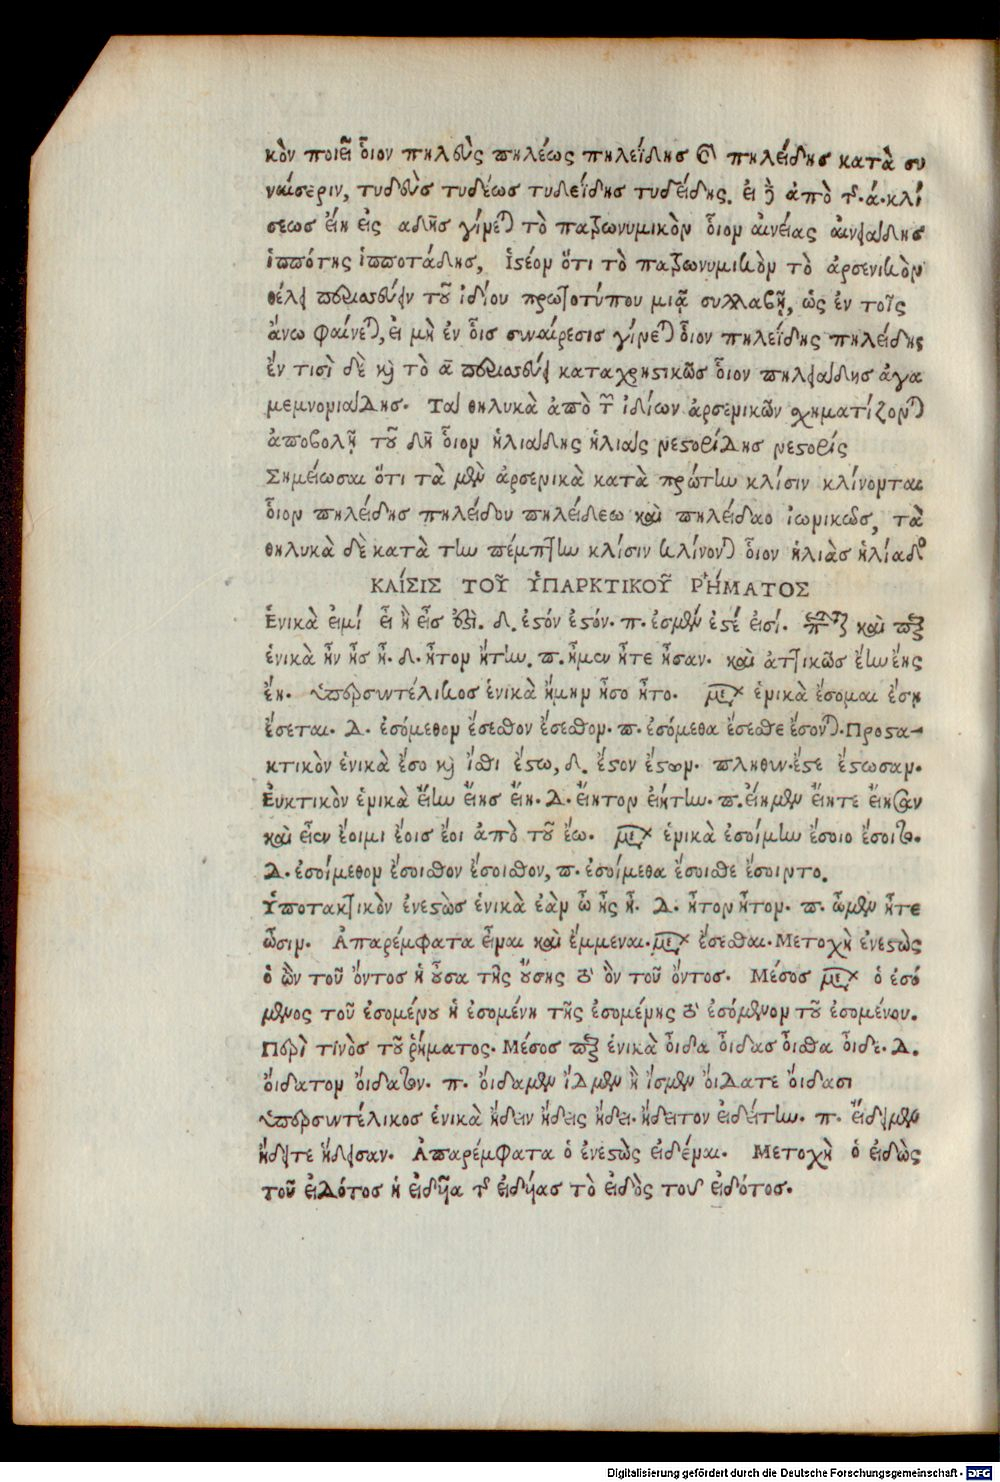 κὸν ποιεῖ οἷον πηλεὺς πηλέως πηλεΐδης καὶ πηλείδης κατὰ συ
ναίρεσιν, τυδεὺς τυδέως τυδεΐδης τυδείδης. εἰ δὲ ἀπὸ τῆς ά κλί
σεως εἴη εἰς αδης γίνεται τὸ πατρωνυμικὸν οἷον αἰνείας αἰνειάδης
ἱππότης ἱπποτάδης, ἰστέον ὅτι τὸ πατρωνυμικὸν τὸ ἀρσενικὸν
θέλει περισσεύειν τοῦ ἰδίου πρωτοτύπου μιᾷ συλλαβῇ, ὡς ἐν τοῖς
ἄνω φαίνεται, εἰ μὴ ἐν οἷς συναίρεσις γίνεται οἷον πηλεΐδης πηλείδης
ἐν τισὶ δὲ καὶ τὸ α περισσεύει καταχρηστικῶς οἷον πηληιάδης ἀγα
μεμνονιάδης. Τὰ θηλυκὰ ἀπὸ τῶν ἰδίων ἀρσενικῶν σχηματίζονται
ἀποβολῇ τοῦ δη οἷον ἡλιάδης ἡλιάς νεστορίδης νεστορίς
Σημείωσαι ὅτι τὰ μὲν ἀρσενικὰ κατὰ πρώτην κλίσιν κλίνονται
οἷον πηλείδης πηλείδου πηλείδεω καὶ πηλείδαο ἰωνικῶς, τὰ
θηλυκὰ δὲ κατὰ τὴν πέμπτην κλίσιν κλίνονται οἷον ἡλιὰς ἡλιάδος
ΚΛΊΣΙΣ ΤΟΥ͂ ὙΠΑΡΚΤΙΚΟΥ͂ ῬΉΜΑΤΟΣ
Ἑνικὰ εἰμί εἶ ἢ εἶς ἐστὶ. δ. ἐστόν ἐστόν. π. ἐσμὲν ἐστέ εἰσί. καὶ
ἑνικὰ ἦν ἦς ἦ. δ. ἦτον ἤτην. π. ἦμεν ἦτε ἦσαν. καὶ ἀττικῶς ἔην ἔης
ἔη. ὑπερσυντέλικος ἑνικὰ ἤμην ἦσο ἦτο. μελ ἑνικὰ ἔσομαι ἔσῃ
ἔσεται. Δ. ἐσόμεθον ἔσεσθον ἔσεσθον. π. ἐσόμεθα ἔσεσθε ἔσονται. Προστα-
κτικὸν ἑνικὰ ἔσο καὶ ἴσθι ἔστω, δ. ἔστον ἔστων. πληθυν. ἔστε ἔστωσαν.
Εὐκτικὸν ἑνικὰ εἴην εἴης εἴη. Δ. εἴητον εἰήτην. π. εἴημεν εἴητε εἴησαν
καὶ εἶεν ἔοιμι ἔοις ἔοι ἀπὸ τοῦ ἔω. μελ ἑνικὰ ἐσοίμην ἔσοιο ἔσοιτο.
Δ. ἐσοίμεθον ἔσοισθον ἔσοισθον, π. ἐσοίμεθα ἔσοισθε ἔσοιντο.
Ὑποτακτικὸν ἐνεστὼς ἑνικὰ ἐὰν ὦ ᾖς ᾖ. Δ. ἦτον ἦτον. π. ὦμεν ἦτε
ὦσιν. Ἀπαρέμφατα εἶναι καὶ ἔμμεναι. μελ ἔσεσθαι. Μετοχὴ ἐνεστὼς
ὁ ὢν τοῦ ὄντος ἡ οὖσα τῆς οὔσης τὸ ὂν τοῦ ὄντος. Μέσος μελ ὁ ἐσό
μενος τοῦ ἐσομένου ἡ ἐσομένη τῆς ἐσομένης τὸ ἐσόμενον τοῦ ἐσομένου.
Περὶ τινὸς τοῦ ῥήματος. Μέσος ἑνικὰ οἶδα οἶδας οἶσθα οἶδε. Δ.
οἴδατον οἴδατον. π. οἴδαμεν ἴδμεν ἢ ἴσμεν οἴδατε οἴδασι
ὑπερσυντέλικος ἑνικὰ ἤδειν ἤδεις ἤδει. ἤδειτον εἰδείτην. π. εἴδειμεν
ἤδειτε ἤδεισαν. Ἀπαρέμφατα ὁ ἐνεστὼς εἰδέναι. Μετοχὴ ὁ εἰδὼς
τοῦ εἰδότος ἡ εἰδυῖα τῆς εἰδυίας τὸ εἰδὸς τοῦ εἰδότος.
Digitalisierung gefördert durch die Deutsche Forschungsgemeinschaft - DFG